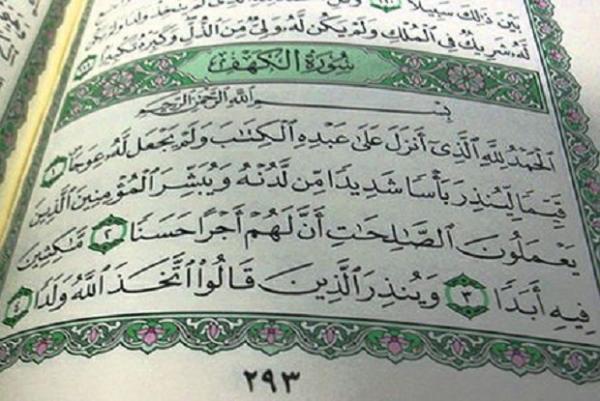 بَيْنَ ذَٰلِكَ سَبِيلًا ١١٠ وَقُلِ
لَّهُۥ شَرِيكٌ فِي ٱلْمُلْكِ وَلَمْ يَكُن لَّهُۥ وَلِيٌّ مِّنَ ٱلذُّلِّ وَكَبِّرْهُ تَكْبِيرًۢا ١١١
سُورَةُ الكَهْفِ
بِسْمِ ٱللَّهِ ٱلرَّحْمَٰنِ ٱلرَّحِيمِ
ٱلْحَمْدُ لِلَّهِ ٱلَّذِىٓ أَنزَلَ عَلَىٰ عَبْدِهِ ٱلْكِتَٰبَ وَلَمْ يَجْعَل لَّهُۥ عِوَجَا ۜ ١
قَيِّمًا لِّيُنذِرَ بَأْسًا شَدِيدًا مِّن لَّدُنْهُ وَيُبَشِّرَ ٱلْمُؤْمِنِينَ ٱلَّذِينَ
يَعْمَلُونَ ٱلصَّٰلِحَٰتِ أَنَّ لَهُمْ أَجْرًا حَسَنًا ٢ مَّٰكِثِينَ
فِيهِ أَبَدًا ٣ وَيُنذِرَ ٱلَّذِينَ قَالُوا۟ ٱتَّخَذَ ٱللَّهُ وَلَدًا ٤
٢٩٣